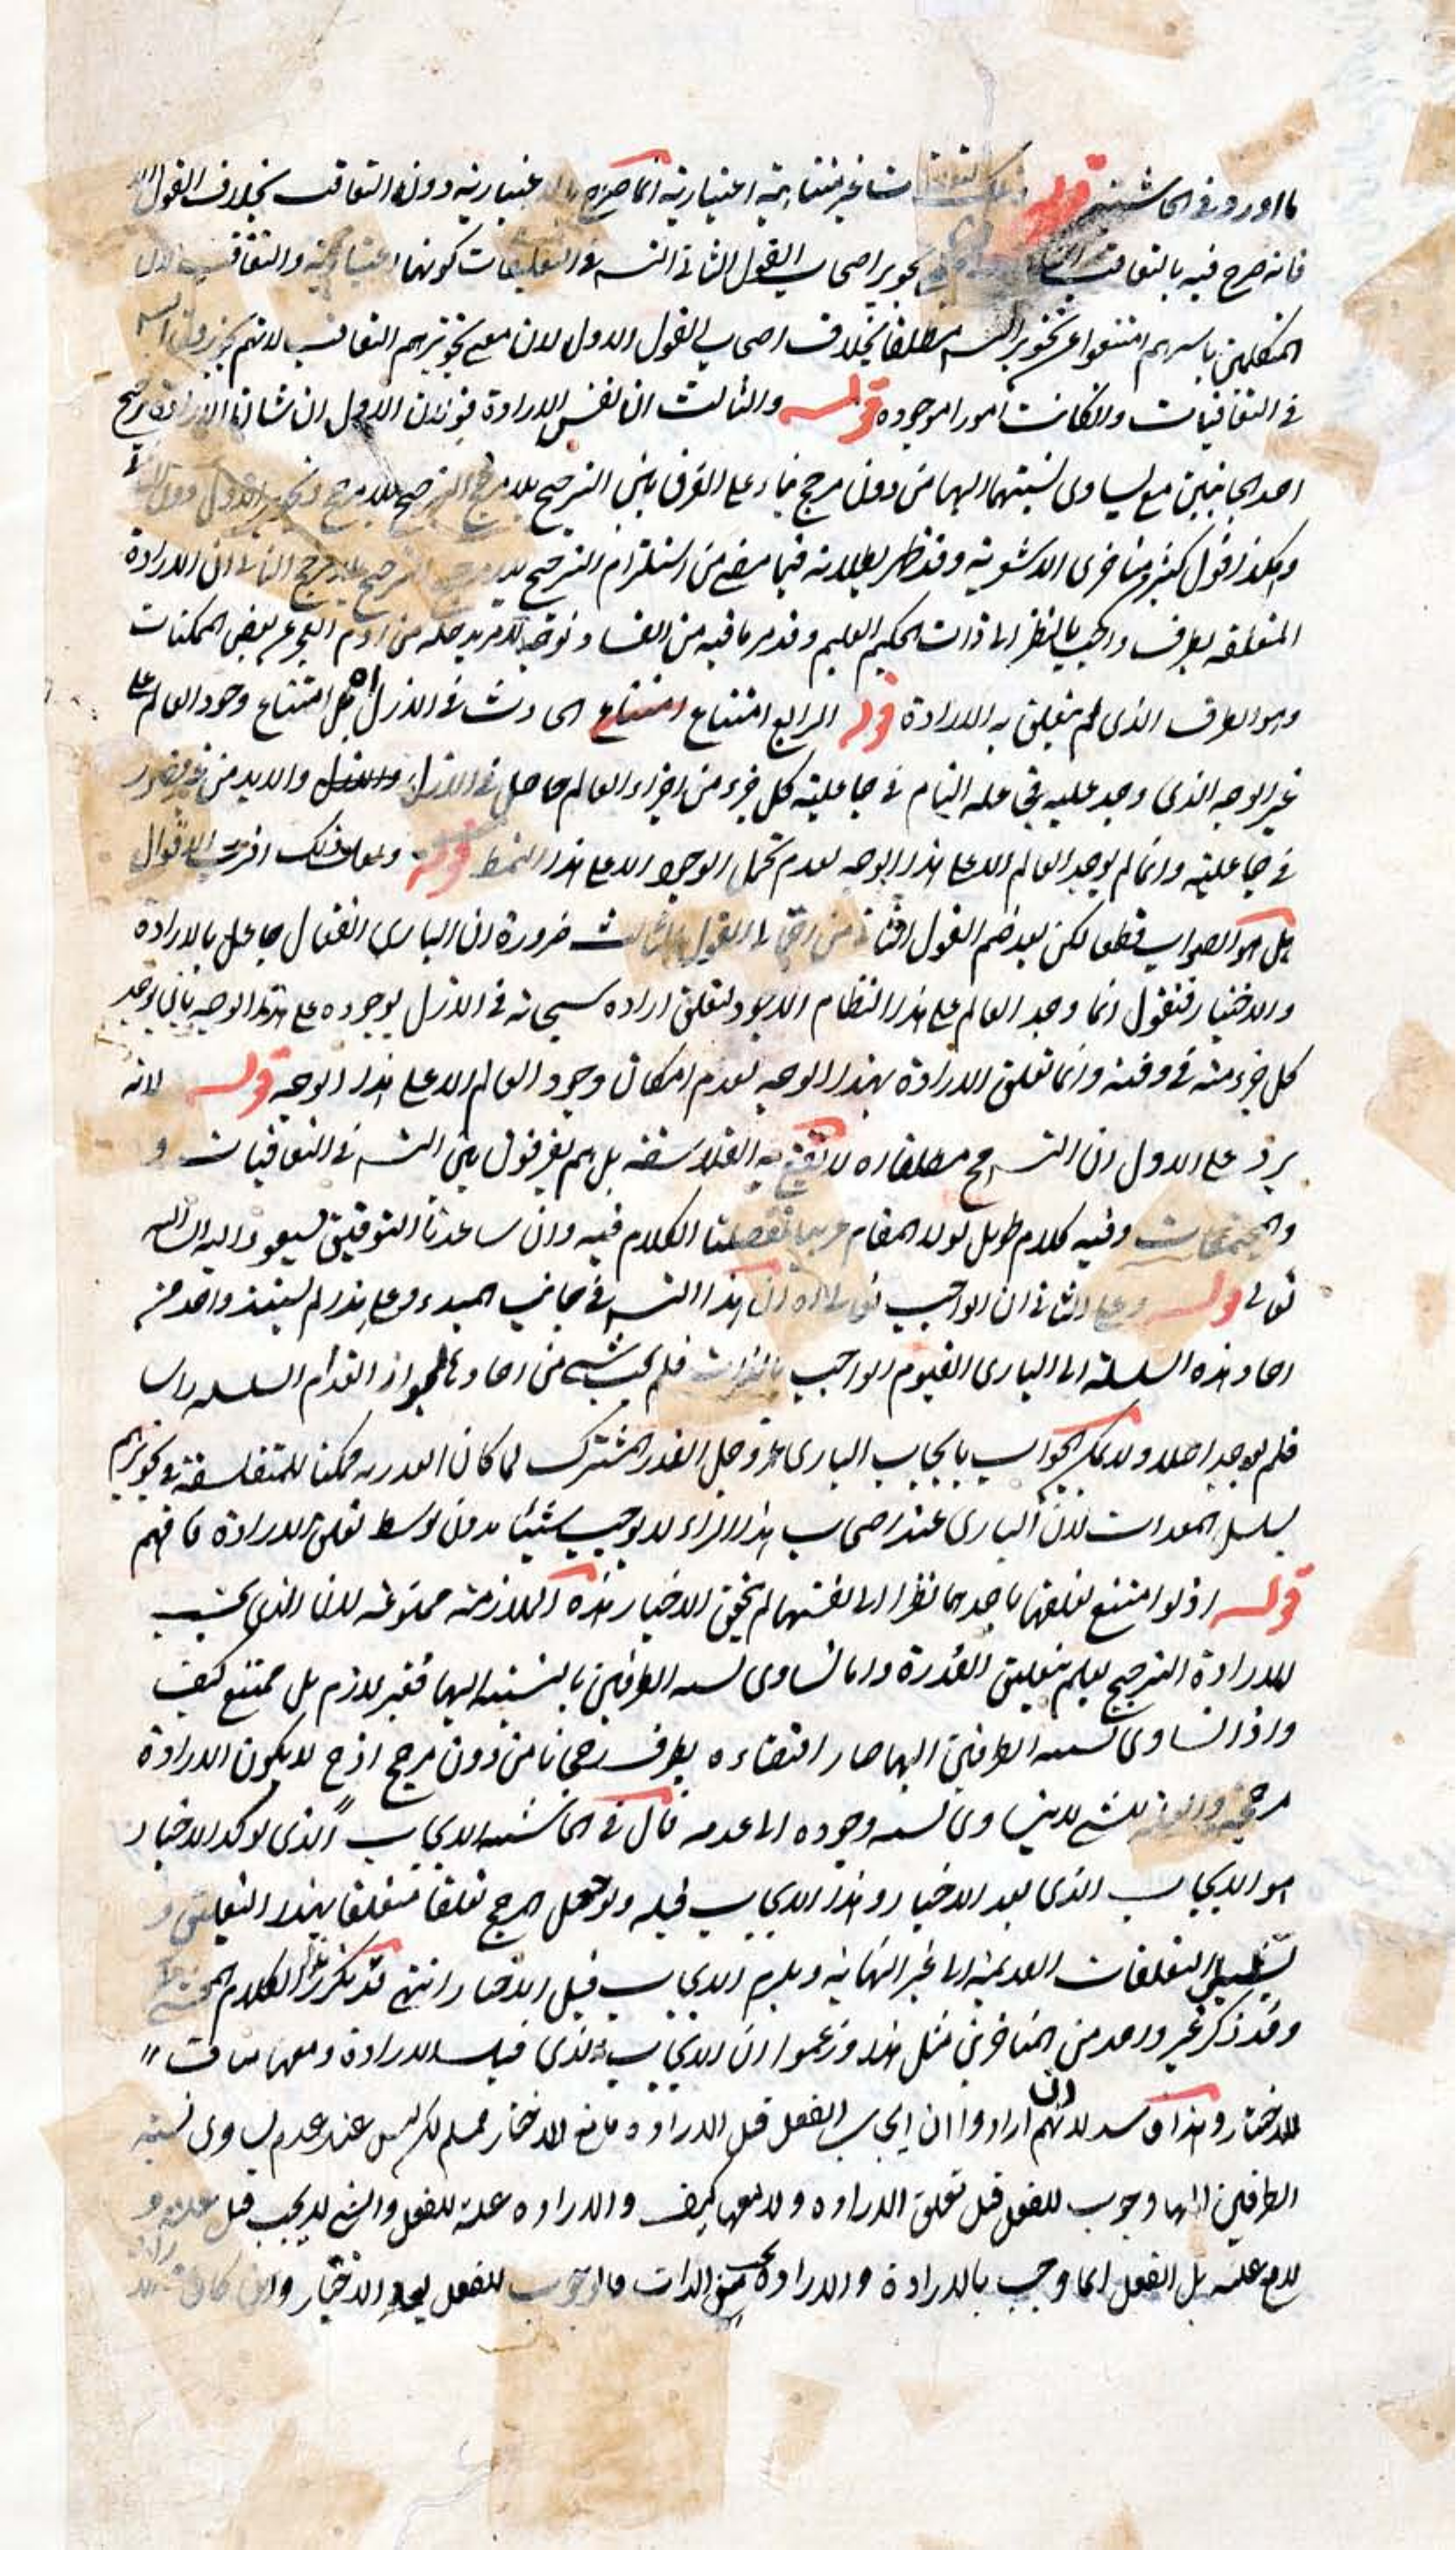 ما اورد فى الحاشية قوله غير متناهية اعتبارية انما صرح بالاعتبارية دون التعاقب بخلاف القول
فانه صرح فيه بالتعاقب اصحاب القول الثانى التسـ فى التعليقات كونها اعتبارية والتعاقب لان
المتكلمين باسرهم امتنعوا عن تجويز التسـ مطلقا بخلاف اصحاب القول الاول لان مع تجويزهم التعاقب لانهم
فى التعاقبيات والكانت امورا موجوده قوله والثالث ان نفس الارادة فونلان الاول ان شان الارادة ترجح
احد الجانبين مع تساوى نسبتهما اليها من دون مرجح بناء على الفرق بين الترجيح بلا مرجح الترجح بلا مرجح وتجويز الاول دون الثانى
وهكذا قول كثير متاخرى الاشعرية وقد ظهر بطلانه فيما مضى من استلزام الترجيح بلا مرجح الترجح بلا مرجح الثانى ان الارادة
المتعلقه بطرف واجب بالنظر الى ذات الحكيم العليم وقد مر ما فيه من الفساد من لزوم العجز عن بعض الممكنات
وهو الطرف الذى لم يتعلق به الارادة قوله الرابع امتناع امتناع الحادث فى الازل اه بل امتناع وجود العالم على
غير الوجه الذى وجد عليه فى علمه التام فى جاعلية كل جزء من اجزاء العالم حاصل فى الازل والازل والابد من غير قصور
فى جاعليته وانما لم يوجد العالم الا على هذا الوجه لعدم تحمل الوجود الا على هذا النمط قوله ولعل ذلك اقرب الاقوال
بل هو الصواب قطعا لكن بعد ضم القول الثالث ضرورة ان البارى الفعال جاعل بالارادة
والاختيار فنقول انما وجد العالم على هذا النظام الا بتعلق اراده سبحانه فى الازل بوجوده على هذا الوجه بان يوجد
كل جزء منه فى وقته وانما تعلق الارادة بهذا الوجه لعدم امكان وجود العالم الا على هذا الوجه قوله لانه
يرد على الاول ان التسـ مح مطلقا اه لا تقنع به الفلاسفة بل هم يفرقون بين التسـ فى التعاقبيات و
والمجتمعات وفيه كلام طويل لولا المقام الكلام فيه وان ساعدنا التوفيق فسيعود اليه ان الله
تعالى قوله وعلى الثانى ان الواجب تعالى اه لان هذا التسـ فى جانب المبدء وعلى هذا لم يستند واحد من
احاد هذه السلسلة الى البارى القيوم الواجب بالذات فلم يجب شىء من احادها لجواز انعدام السلسله راسا
فلم يوجد اصلا ولا يمكن الجواب بايجاب البارى عز وجل القدر المشترك لما كان العذر به ممكنا للمتفلسفة فى تجويزهم
تسلسل المعدات لان البارى عند اصحاب هذا الراء لا يوجب شيئا بدون توسط تعلق الارادة فافهم
قوله اذ لو امتنع تعلقها باحدهما نظرا الى نفسها لم يتحقق الاختيار هذه الملازمة ممنوعة لان الذى يجب
للارادة الترجيح لعلم بتعلق القدرة واما تساوى نسبه الطرفين بالنسبة اليها فغير لازم بل ممتنع كيف
واذا تساوى نسبه الطرفين اليها صار اقتضاءه بطرف رجحانا من دون مرجح اذ ح لا يكون الارادة
مرجحة والعلة للشىء لا يتساوى نسبه وجوده الى عدمه قال فى الحاشيه الايجاب الذى توكد الاختيار
هو الايجاب الذى بعد الاختيار وهذا الايجاب قبله ولو جعل المرجح تعلقا متعلقا بهذا التعلق و
تسلسل التعلقات القديمة الى غير النهاية ويلزم الايجاب قبل الاختيار انتهى قد تكرر هذا الكلام
وقد ذكر غير واحد من المتاخرين مثل هذا وزعموا ان الايجاب الذى قبل الارادة ومعها مناف
للاختيار وهذا فاسد لانهم ان ارادوا ان ايجاب الفعل قبل الاراده مانع الاختيار فمسلم لكن ليس عند عدم تساوى نسبة
الطرفين اليها وجوب للفعل قبل تعلق الاراده ولا معها كيف والاراده علة للفعل والشىء لا يجب قبل علته و
لا مع علته بل الفعل انما وجب بالارادة والارادة من الذات فالوجوب للفعل بعد الاختيار وان كان